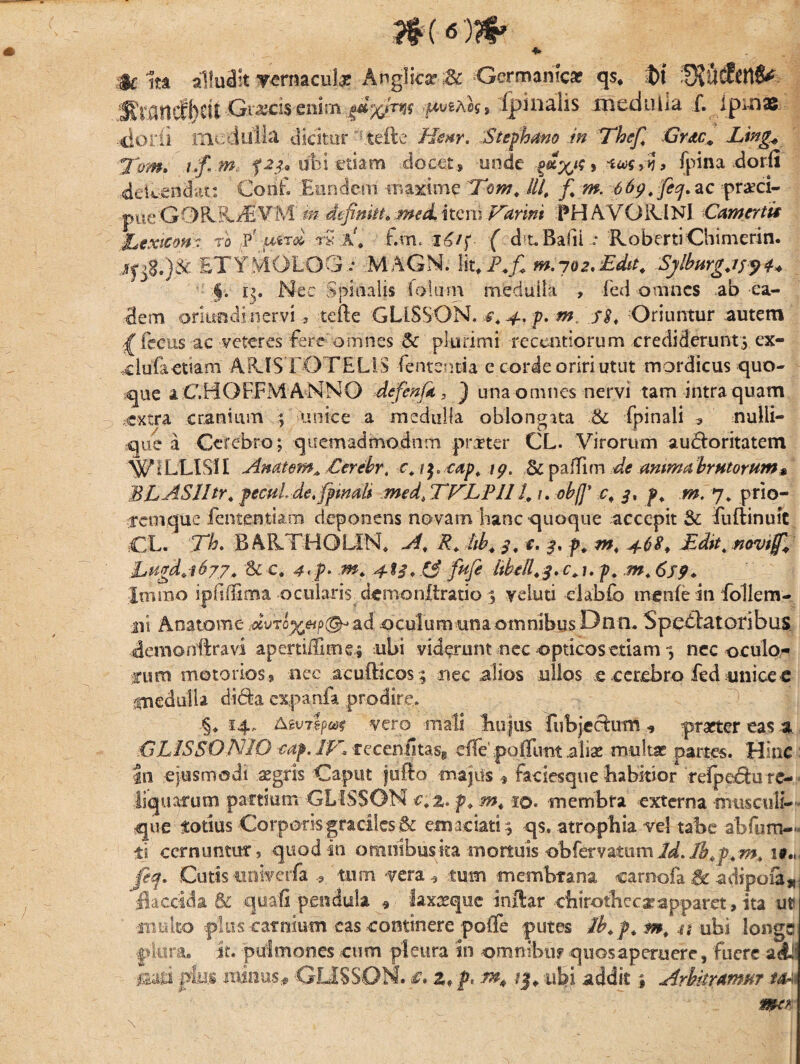 ( 6 )
& ita alludit vernaculæ Anglicæ & Germanicæ qs. Di Rücken-
Kranckheit Græcis enim ῥάχιτης μυελὸς, spinalis medulla s. spinæ
dorsi medulla dicitur teste Henr. Stephano in Thes. Græc. Ling.
Tom. 1. f. m. 523. ubi etiam docet, unde ῥάχις, εως, ἡ, spina dorsi
descendat: Conf. Eundem maxime Tom. III. f. m. 669. seq. ac præci-
pue GORRÆVM in definitt. med. item Varini PHAVORINI Camertis
Lexicon: τὸ Ρ' μετὰ τῦ Α'. f.m. 161f ( dt. Basil : Roberti Chimerin.
1538.) & ETYMOLOG: MAGN. lit. P. f. m. 702. Edit. Sylburg. 1594.
§. 13. Nec Spinalis solum medulla , sed omnes ab ea-
dem oriundi nervi, teste GLISSON. c. 4. p. m. 58. Oriuntur autem
( secus ac veteres fere omnes & plurimi recentiorum crediderunt; ex-
clusa etiam ARISTOTELIS sententia e corde oriri utut mordicus quo-
que a C. HOFFMANNO defensa, ) una omnes nervi tam intra quam
extra cranium ; unice a medulla oblongata & spinali , nulli-
que à Cerebro; quemadmodum præter CL. Virorum auctoritatem
WILLISII Anatom. Cerebr. c. 13. cap. 19. & passim de anima brutorum,
BLASII tr. pecul. de. spinali med. TVLPII l. 1. obs. c. 3. p. m. 7. prio-
remque sententiam deponens novam hanc quoque accepit & sustinuit
CL. Th. BARTHOLIN. A. R. lib. 3. c. 3. p. m. 468. Edit. noviss.
Lugd. 1677. & c. 4. p. m. 483. & fuse libell. 3. c. 1. p. m. 659.
Immo ipsissima ocularis demonstratio ; veluti elabso mense in sollem-
ni Anatome ἀυτόχειρ@ ad oculum una omnibus Dnn. Spectatoribus
demonstravi apertissime; ubi viderunt nec opticos etiam ; nec oculo-
rum motorios, nec acusticos; nec alios ullos e cerebro sed unice e
medulla dicta expansa prodire.
§. 14. Δευτέρως vero mali hujus subjectum , præter eas a
GLISSONIO cap. IV. recensitas, esse possunt aliæ multæ partes. Hinc
in ejusmodi ægris Caput justo majus , faciesque habitior respectu re-
liquarum partium GLISSON c. 2. p. m. 10. membra externa musculi-
que totius Corporis graciles & emaciati; qs. atrophia vel tabe absum-
ti cernuntur, quod in omnibus ita mortuis observatum Id. Ib. p. m. 10.
seq. Cutis universa , tum vera , tum membrana carnosa & adiposa,
flaccida & quasi pendula , laxæque instar chirothecæ apparet, ita ut
multo plus carnium eas continere posse putes Ib. p. m. 11 ubi longe
plura. it. pulmones cum pleura in omnibus quos aperuere, fuere ad-
nati plus minus, GLISSON. c. 2. p. m. 13. ubi addit ; Arbitramur ta-
men